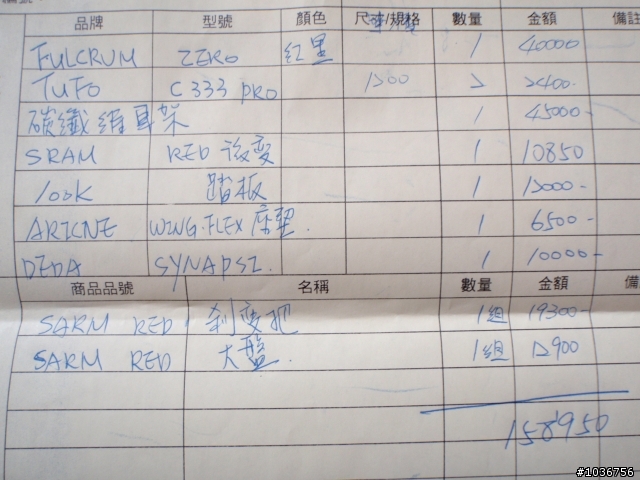 品牌 型號 顏色 尺寸/規格 數量 金額 備註
FULCRUM ZERO 紅黑 1 40000
TUFO C 333 PRO 1200 2 2400.
碳纖維車架 1 45000-
SRAM RED 後變 1 10850
look 踏板 1 12000-
ARIONE WING.FLEX 座墊. 1 6500-
DEDA SYNAPSI. 1 10000-
商品品號 名稱 數量 金額 備
SARM RED 剎變把 1組 19300-
SARM RED 大盤. 1組 12900
158950
#1036756